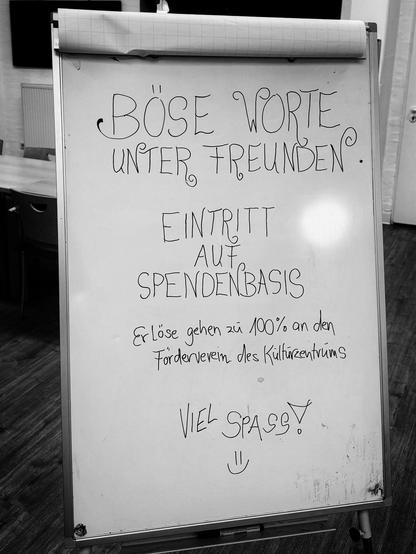 BÖSE WORTE
UNTER FREUNDEN
EINTRITT
AUF
SPENDENBASIS
Erlöse gehen zu 100% an den
Förderverein des Kulturzentrums
VIEL SPASS!